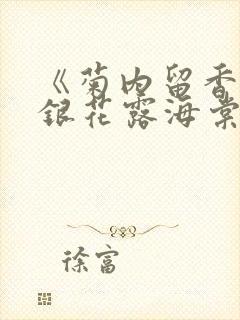 《菊内留香
银花露海棠
徐富